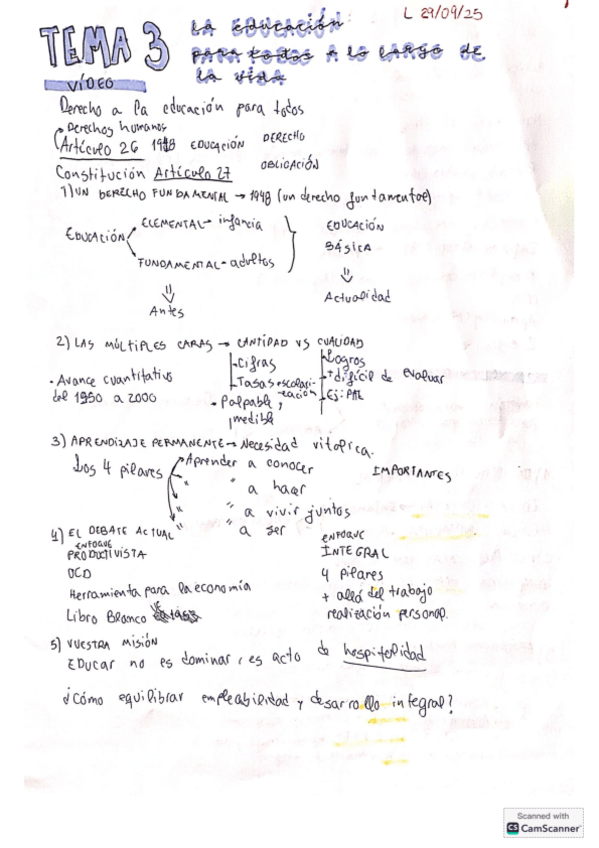 L 29/09/25
TEMA 3 LA educación
PARA todos A lo LARGO de
la vida
VÍDEO
Derecho a la educación para todos
Derechos humanos
Artículo 26 1948 EDUCACIÓN DERECHO
OBLIGACIÓN
Constitución Artículo 27
1) UN DERECHO FUNDAMENTAL → 1948 (un derecho
EDUCACIÓN ELEMENTAL → infancia
FUNDAMENTAL - adultos
EDUCACIÓN
BÁSICA
Antes
Actualidad
2) LAS MÚLTIPLES CARAS → CANTIDAD VS CUALIDAD
• Avance cuantitativo
del 1950 a 2000
- Cifras
- Tasas escolari-
zación
- Palpable,
medible
- Logros
- + difícil de evaluar
- Ej:
3) APRENDIZAJE PERMANENTE → Necesidad
Los 4 pilares Aprender a conocer IMPORTANTES
" a hacer
" " a vivir juntos
" " a ser
4) EL DEBATE ACTUAL
ENFOQUE
PRODUCTIVISTA
OCD
Herramienta para la economía
Libro Blanco
ENFOQUE
INTEGRAL
4 pilares
+ allá del trabajo
realización personal.
5) VUESTRA MISIÓN
EDucar no es dominar, es acto de hospitalidad
¿Cómo equilibrar empleabilidad y desarrollo integral?
Scanned with
CS CamScanner